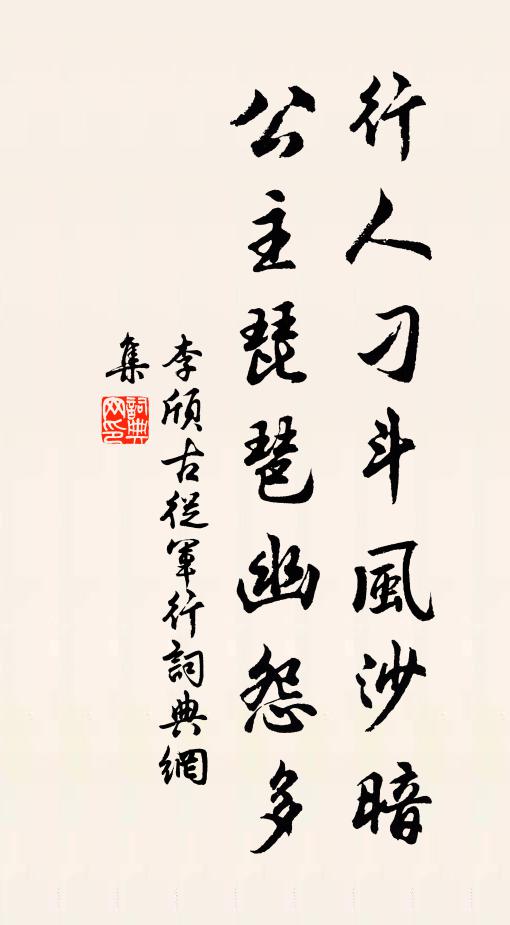 行人刁斗風沙暗
公主琵琶幽怨多
李頎古從軍行詞典網
集
詞典網印